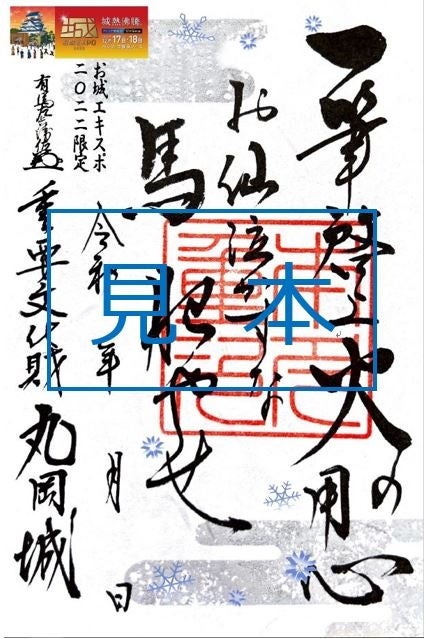 一筆啓上 火の用心
お仙泣かすな
馬肥やせ
お城エキスポ
二〇二二限定
令和 年 月 日
重要文化財 丸岡城
見本
城熱沸騰
12月17日・18日